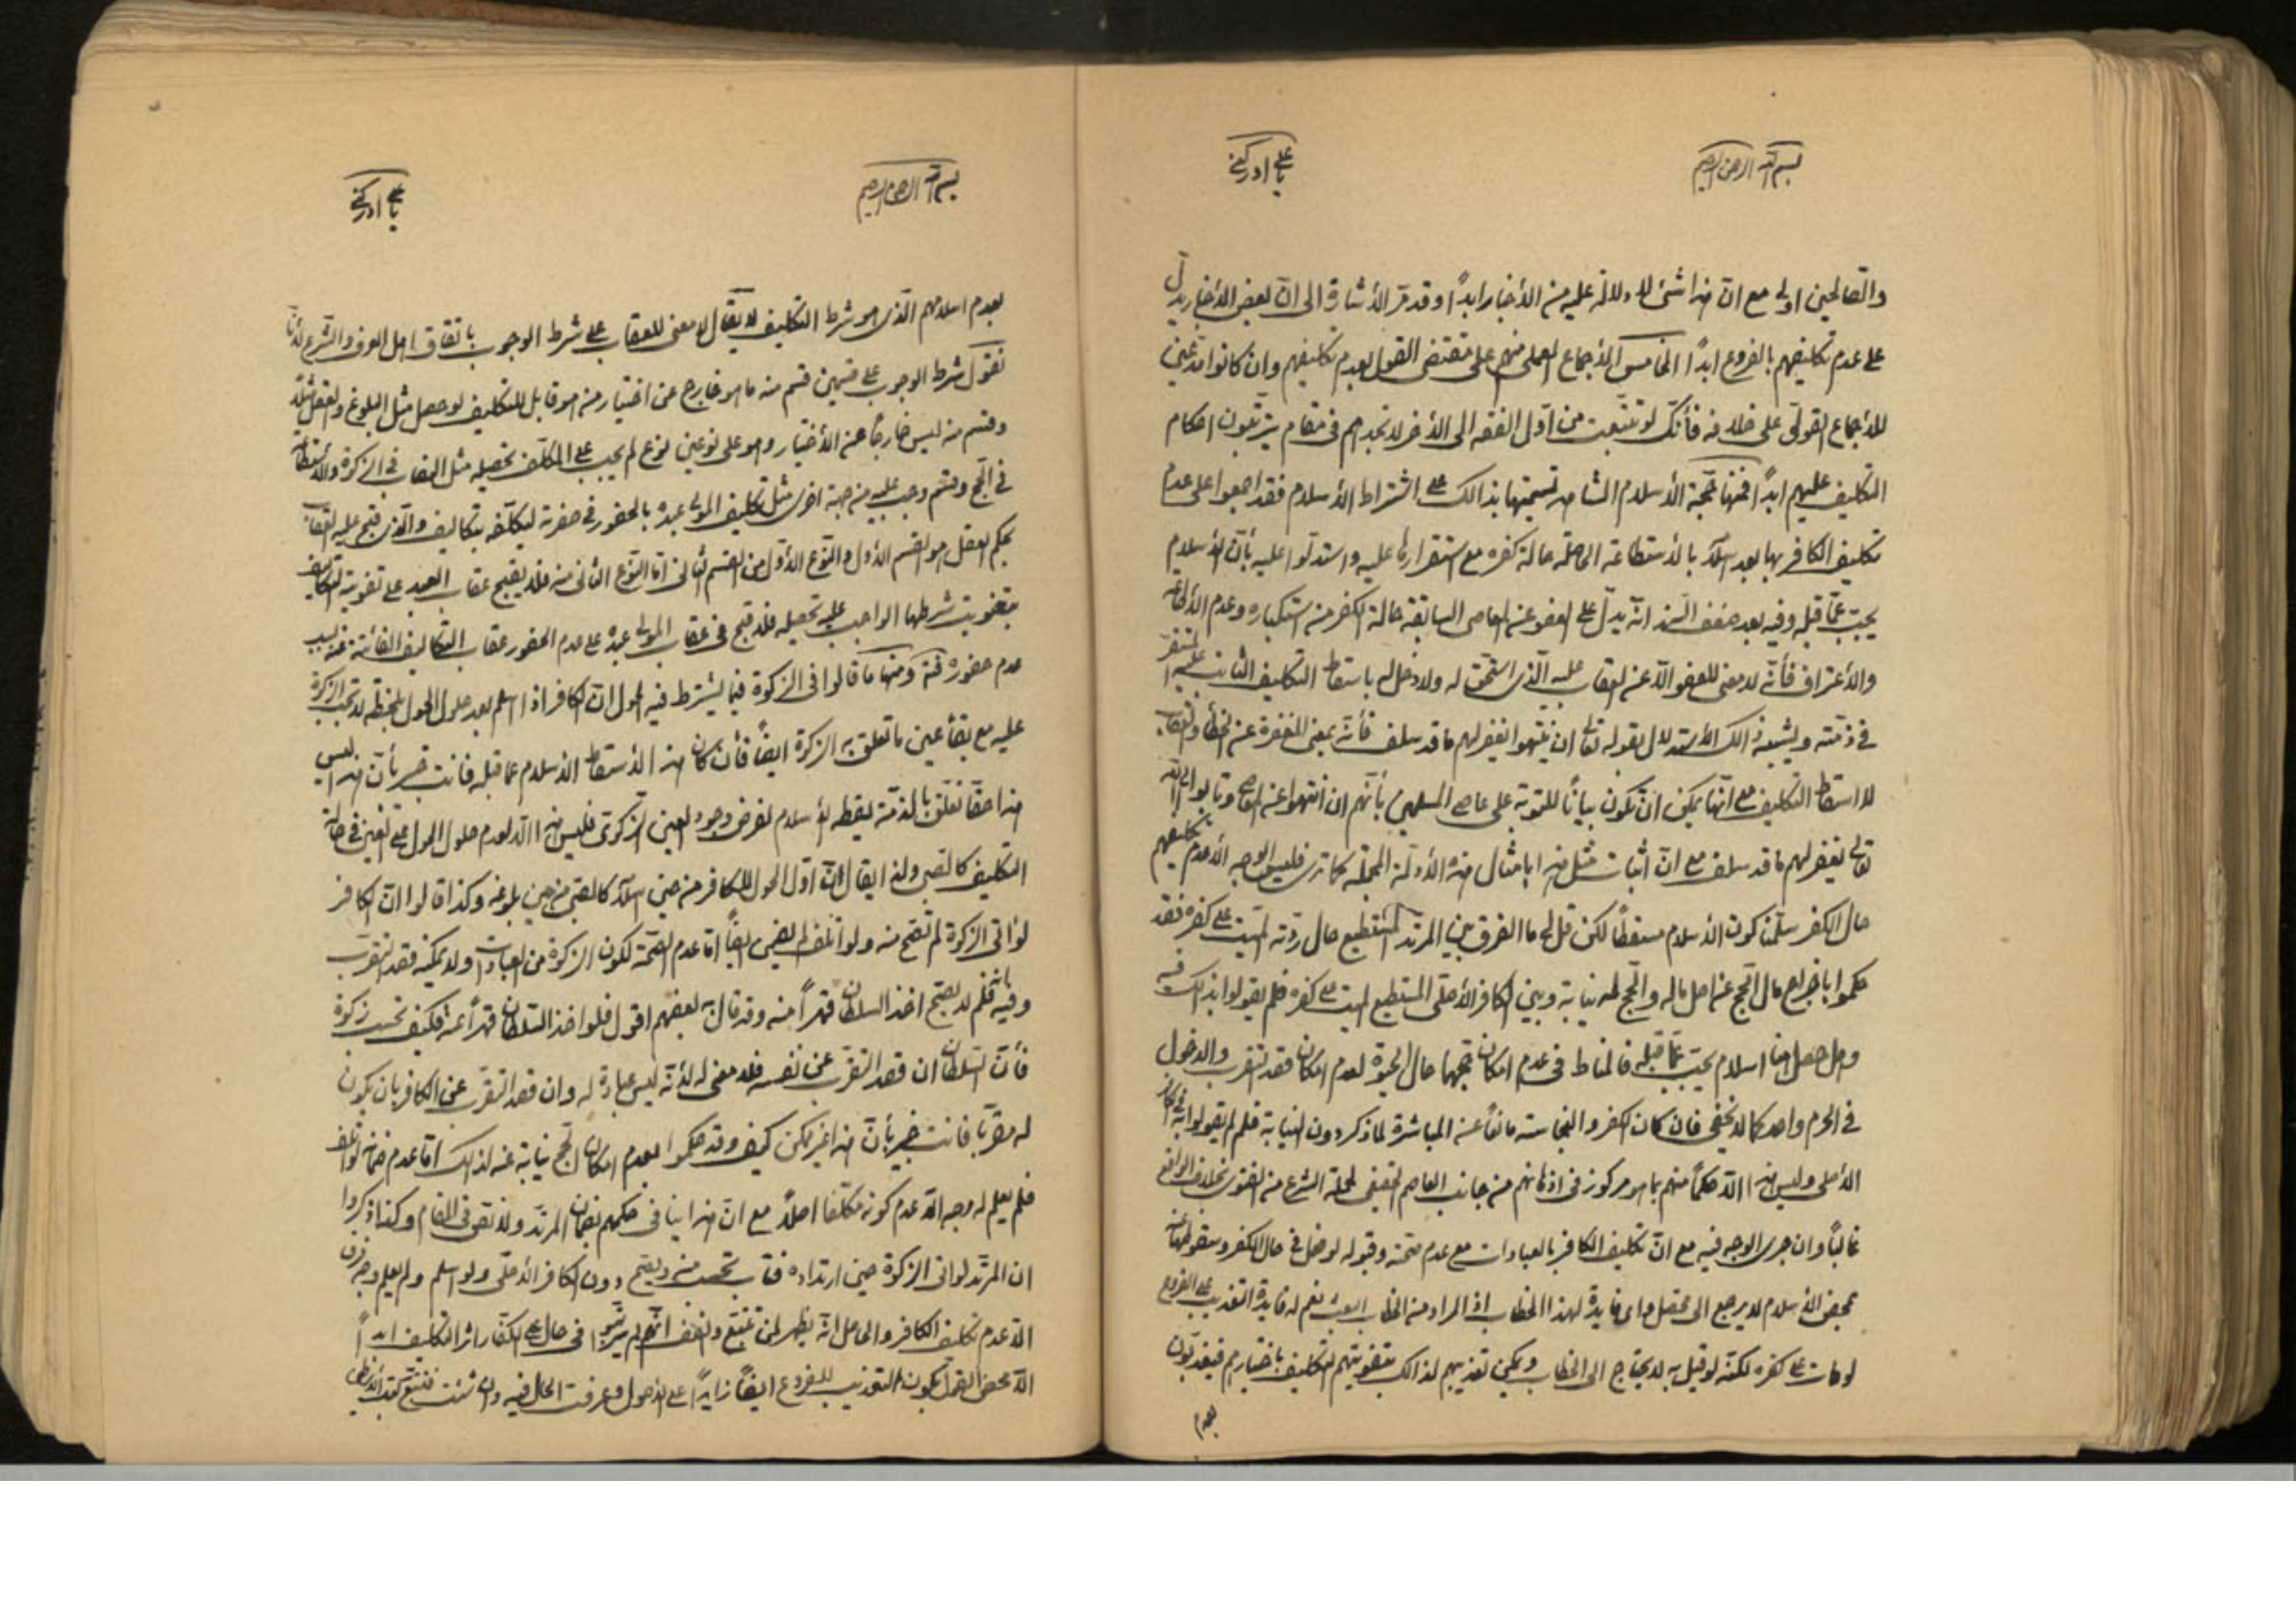 بسم الله الرحمن الرحيم
يا علي ادركني
والصالحين اولى مع ان هذا شئ لا دلالة عليه من الأخبار ابداً وقد مر الأشارة الى ان بعض الأخبار يدل
على عدم تكليفهم بالفروع ابداً الخامس الأجماع العملى منهم على مقتضى القول بعدم تكليفهم وان كانوا مدعين
للأجماع القولى على خلافه فأنك لو تتبعت من اول الفقه الى الأخر لا تجدهم فى مقام يرتبون احكام
التكليف عليهم ابداً فمنها حجة الأسلام الشاهد تسميتها بذالك على اشتراط الأسلام فقد اجمعوا على عدم
تكليف الكافر بها بعد اسلامه بالأستطاعة الحاصلة حالة كفره مع استقرارها عليه واستدلوا عليه بأن الأسلام
يجب عما قبله وفيه بعد ضعف السند انه يدل على العفو عن المعاصى السابقة حالة الكفر من استكباره وعدم الأطاعة
والأعتراف فأنه لا معنى للعفو الا عن العقاب عليه الذى استحق له ولا دخل له باسقاط التكليف الثابت عليه المستقر
فى ذمته ويشبه ذالك الأستدلال بقوله تعالى ان ينتهوا يغفر لهم ما قد سلف فأنه بمعنى المغفرة عن الخطأ والعقاب
لا اسقاط التكليف مع انها يمكن ان تكون بياناً للتوبة على عاصى المسلمين بأنهم ان انتهوا عن المعاصى وتابوا الى الله
تعالى يغفر لهم ما قد سلف مع ان اثبات مثل هذا بامثال هذه الأدلة المجملة كما ترى فليس الوجه الا عدم تكليفهم
حال الكفر سلمنا كون الأسلام مسقطاً لكن قل لى ما الفرق بين المرتد المستطيع حال ردته الميت على كفره فقد
حكموا باخراج مال الحج عن اصل ماله والحج له نيابة وبين الكافر الأصلى المستطيع الميت على كفره فلم يقولوا بذالك فيه
وهل حصل هنا اسلام يجب عما قبله فالمناط فى عدم امكان حجهما حال الحيوة لعدم امكان قصد التقرب والدخول
فى الحرم واحد كما لا يخفى فان كان الكفر والنجاسة مانعاً عن المباشرة لما ذكر دون النيابة فلم لم يقولوا به فى الكافر
الأصلى وليس هذا الا حكماً منهم بما هو مركوز فى اذهانهم من جانب العاصم الحقيقى لحملة الشرع من الفتوى بخلاف الواقع
غالباً وان جرى الوجه فيه مع ان تكليف الكافر بالعبادات مع عدم صحته وقبوله لو فعل فى حال الكفر وسقوطها عنه
بمحض الأسلام لا يرجع الى محصل واى فايدة لهذا الخطاب اذ المراد من الخطاب البعث نعم له فايدة التعذيب على الفروع
لو مات على كفره لكنه لو قيل به لا يحتاج الى الخطاب ويمكن تعذيبهم لذالك بتفويتهم التكليف باختيارهم فيعذبون
بعدم
بسم الله الرحمن الرحيم
يا علي ادركني
بعدم اسلامهم الذى هو شرط التكليف لا يقال لا معنى للعقاب على شرط الوجوب باتفاق اهل العرف والشرع لأنا
نقول شرط الوجوب على قسمين قسم منه ما هو خارج عن اختيار من هو قابل للتكليف لو حصل مثل البلوغ والعقل مثلا
وقسم منه ليس خارجاً عن الأختيار وهو على نوعين نوع لم يجب على المكلف تحصيله مثل النصاب فى الزكوة والأستطاعة
فى الحج وقسم وجب عليه من جهة اخرى مثل تكليف المولى عبده بالحضور فى حضرته ليكلفه بتكاليف والذى قبح عليه العقاب
بحكم العقل هو القسم الأول والنوع الأول من القسم الثانى اما النوع الثانى منه فلا يقبح عقاب العبد على تفويت التكاليف
بتفويت شرطها الواجب عليه تحصيله فلا قبح فى عقاب المولى عبده على عدم الحضور عقاب التكاليف الفائتة عنه لسبب
عدم حضوره فته ومنها ما قالوا فى الزكوة فيما يشترط فيه الحول ان الكافر اذا اسلم بعد حلول الحول بلحظة لا تجب الزكوة
عليه مع بقاء عين ما تعلق به الزكوة ايضاً فأن كان هذا الأسقاط الأسلام عما قبله فانت خبير بأن هذا ليس
هذا حقا تعلق بالذمة يقطه الأسلام لفرض وجود العين الزكوى فليس هذا الا لعدم حلول الحول على العين فى حالة
التكليف كالصبى ولذا يقال ان اول الحول للكافر من حين اسلامه كالصبى من حين بلوغه وكذا قالوا ان الكافر
لو اتى الزكوة لم تصح منه ولو اتلف لم يضمن ايضاً اما عدم الصحة لكون الزكوة من العبادات ولا يمكنه قصد التقرب
وفيه بانه فلم لا يصح اخذ السلطان قهراً منه وقد قال به بعضهم اقول فلو اخذ السلطان قهراً عنه فكيف تحسب زكوة
فأن السلطان ان قصد التقرب عن نفسه فلا معنى له لأنه ليس عبادة له وان قصد التقرب عن الكافر بان يكون
له مقرباً فانت خبير بأن هذا غير ممكن كيف وقد حكموا بعدم امكان الحج نيابة عنه لذالك اما عدم ضمانه لو اتلف
فلم يعلم له وجه الا عدم كونه مكلفا اصلاً مع ان هذا ينافى حكمهم بضمان المرتد ولا تقوى فى المقام وكذا ذكروا
ان المرتد لو اتى الزكوة حين ارتداده فتاب تحسب منه ويصح دون الكافر الأصلى ولو اسلم ولم يعلم وجه فرق
الا عدم تكليف الكافر والحاصل انه يظهر لمن تتبع وانصف انهم لم يرتبوا فى حال على الكفار اثر التكليف ابداً
الا محض القول بكون التعذيب للفروع ايضاً زايداً على الأصول وعرفت الحال فيه وان شئت فتتبع كتب